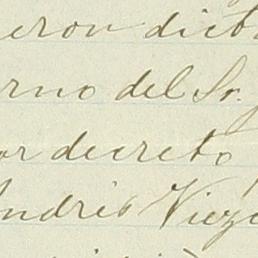 eron dict
erno del Sr.
or decreto
Andrés Viezc